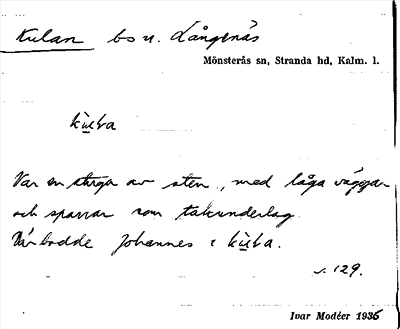 Kulan bs u. Långenäs
Mönsterås sn, Stranda hd, Kalm. l.
Var en stuga av sten, med låga väggar
och sparrar som takunderlag.
bodde Johannes i
s. 129.
Ivar Modéer 1936